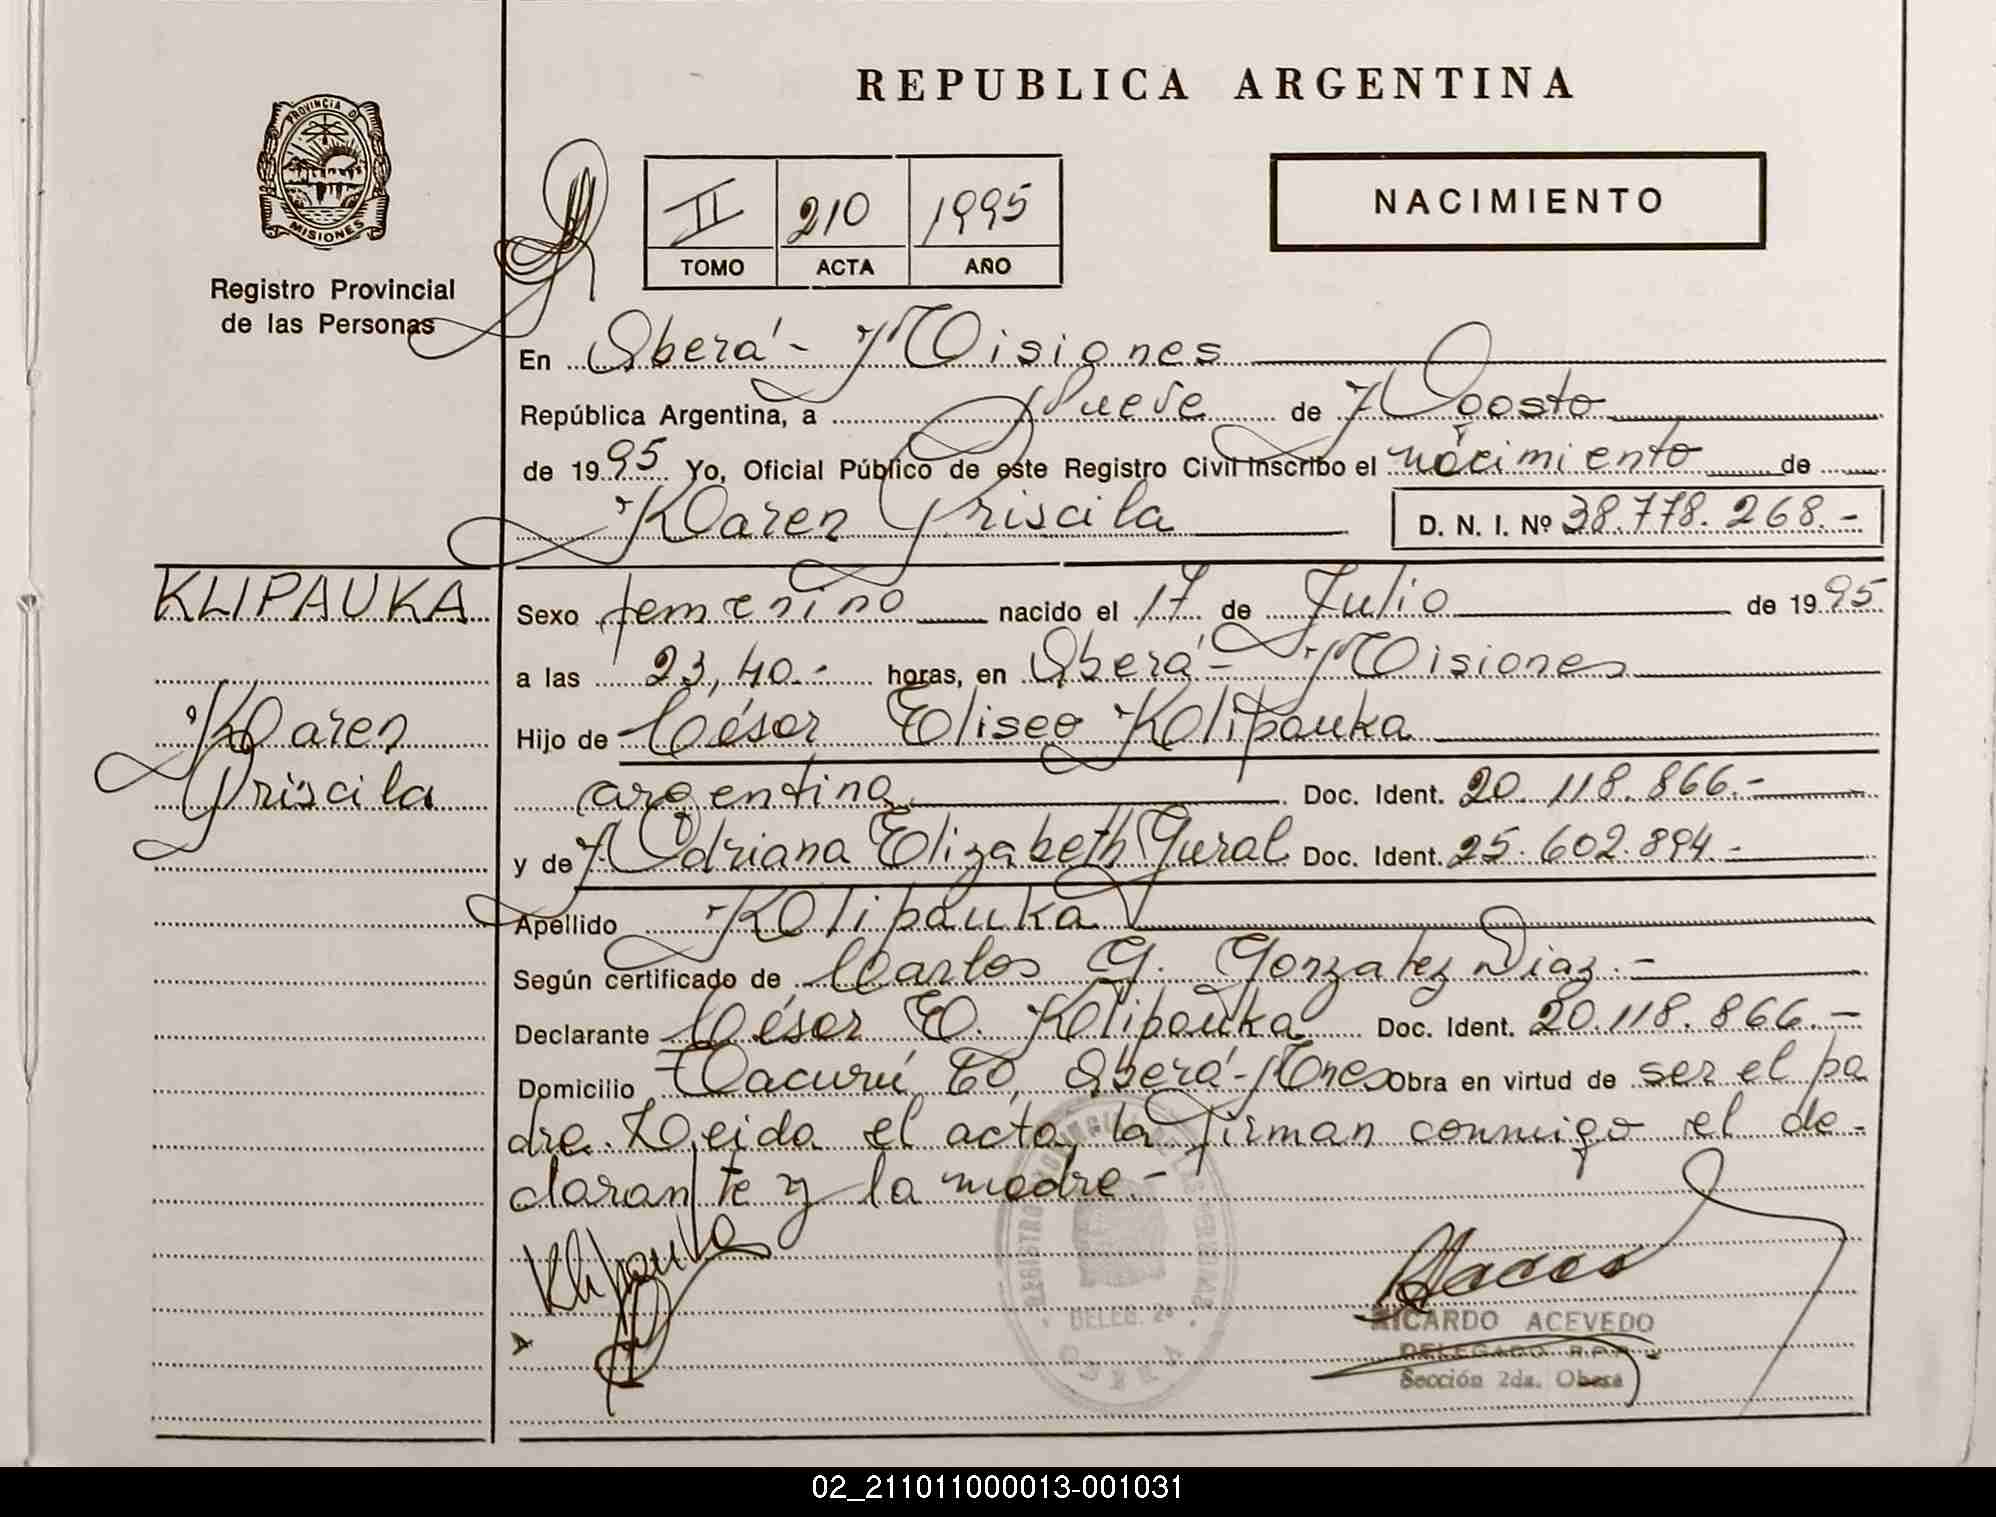 REPUBLICA ARGENTINA
PROVINCIA DE
MISIONES
Registro Provincial
de las Personas
II 210 1995
TOMO ACTA AÑO
NACIMIENTO
En Oberá - Misiones
República Argentina, a Nueve de Agosto
de 1995 Yo, Oficial Público de este Registro Civil inscribo el nacimiento de
Karen Priscila D. N. I. Nº 38.778.268.-
KLIPAUKA
Karen
Priscila
Sexo femenino nacido el 17 de Julio de 1995
a las 23,40.- horas, en Oberá - Misiones
Hijo de César Eliseo Klipauka
argentino Doc. Ident. 20.118.866.-
y de Adriana Elizabeth Gural Doc. Ident. 25.602.894.-
Apellido Klipauka
Según certificado de Carlos G. Gonzalez Diaz.-
Declarante César E. Klipauka Doc. Ident. 20.118.866.-
Domicilio Tacurú 60, Oberá - Mnes Obra en virtud de ser el pa
dre. Leida el acta, la firman conmigo el de-
clarante y la madre.-
Klipauka
DELEG. 2ª
OBERA
RICARDO ACEVEDO
DELEGADO R.P.P.
Sección 2da. Oberá
02_211011000013-001031